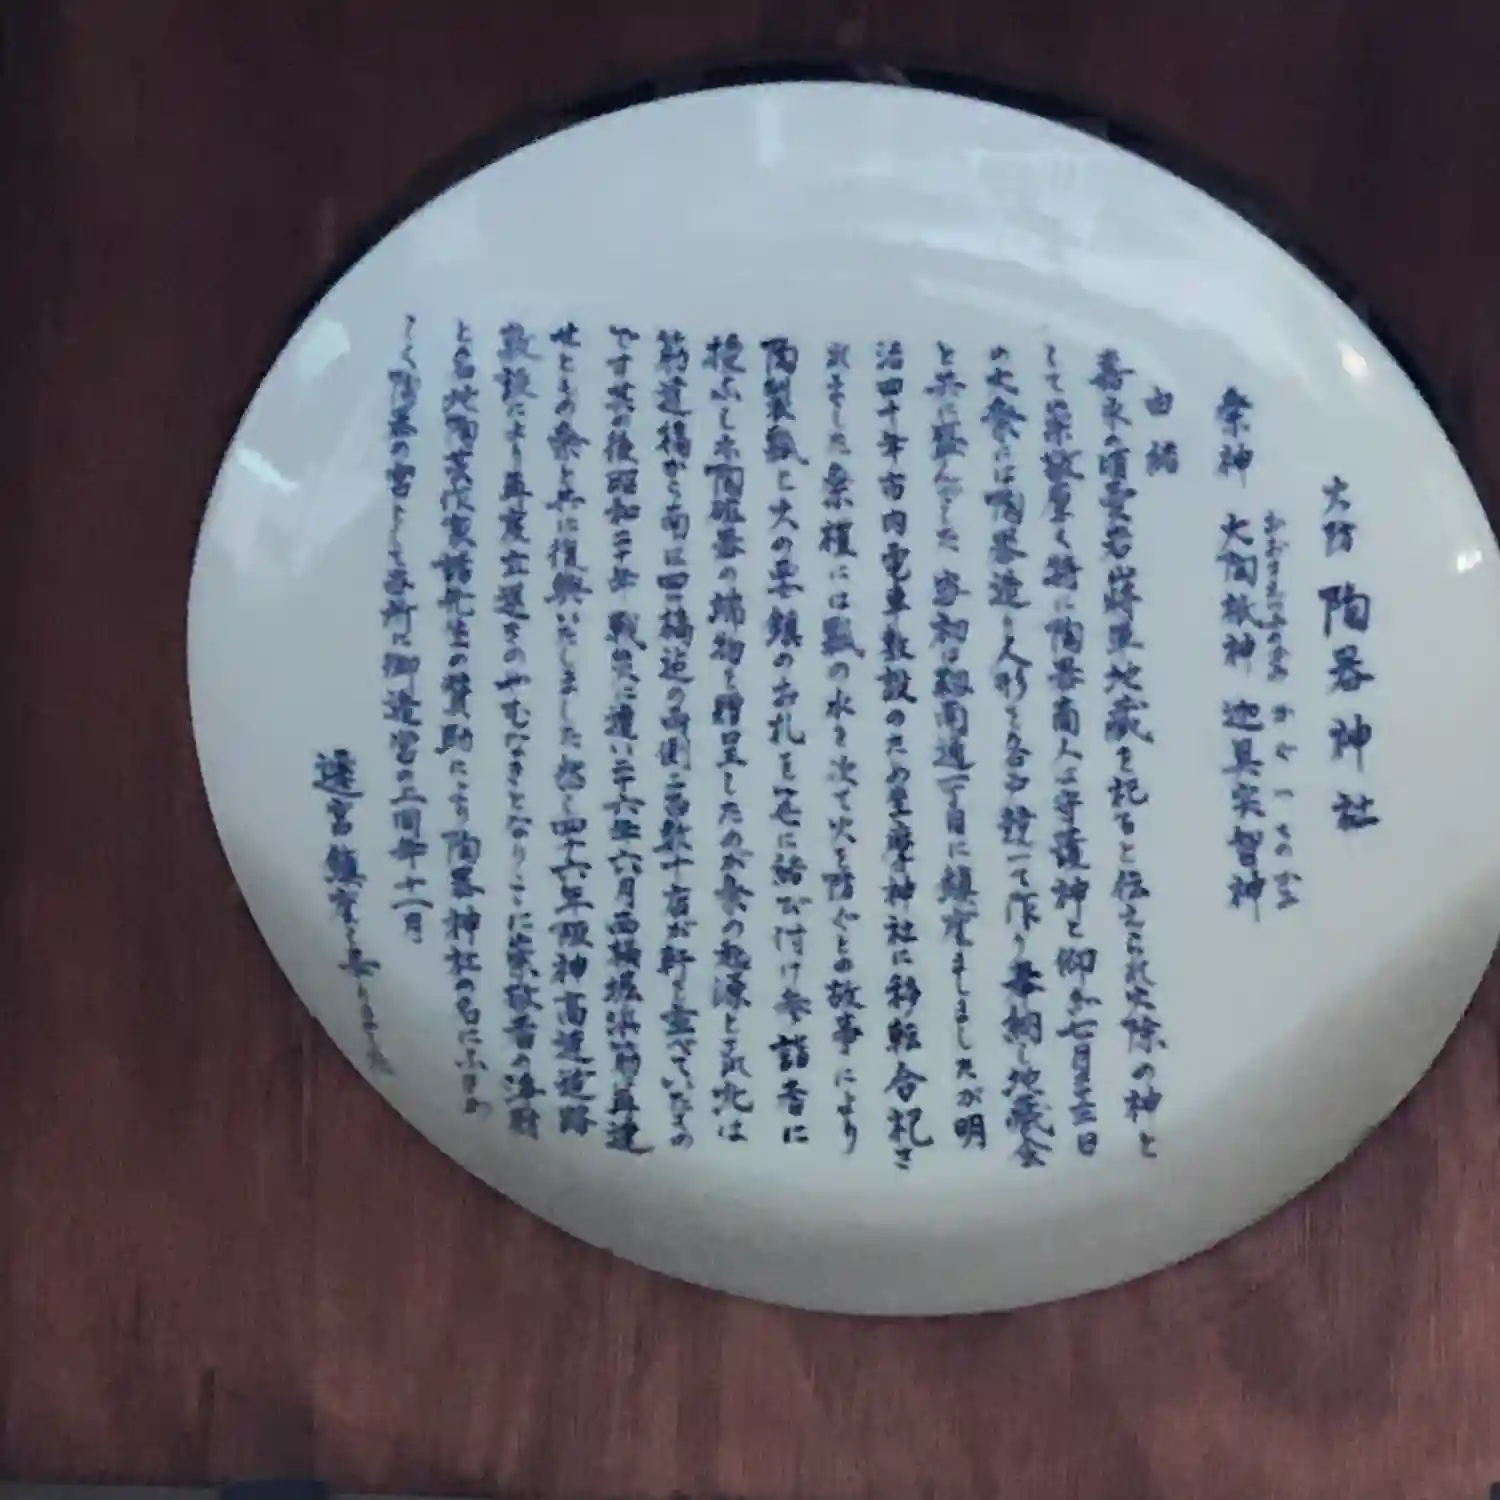 火防 陶器神社
祭神 大陶祇神 迦具突智神
おおすえつみのかみ かぐつちのかみ
由緒
嘉永の頃愛宕山将軍地蔵を祀ると伝えられ火除の神と
して崇敬厚く特に陶器商人は守護神と仰ぎ七月廿三日
の大祭には陶器造り人形を各町競って作り奉納し地蔵会
と共に盛んでした 当初は靱南通一丁目に鎮座ましましたが明
治四十年市内電車敷設のため坐摩神社に移転合祀さ
れました祭壇には瓢の水を次で火を防ぐとの故事により
陶製瓢と火の要鎮のお札を笹に結び付け参詣者に
授ふし亦陶磁器の端物を贈呈したのが祭の起源とされ北は
筋違橋から南は四ツ橋迄の両側二百数十店が軒を並べていたもの
です其の後昭和二十年戦災に遭い二十六年六月西横堀浜筋に再建
せともの祭と共に復興いたしました然し四十六年阪神高速道路
敷設により再度立退きの止むなきとなりここに崇敬者の浄財
と各地陶芸作家諸先生の賛助により陶器神社の名にふさわ
しく陶器の宮として当所に御造営の上同年十一月
遷宮鎮座